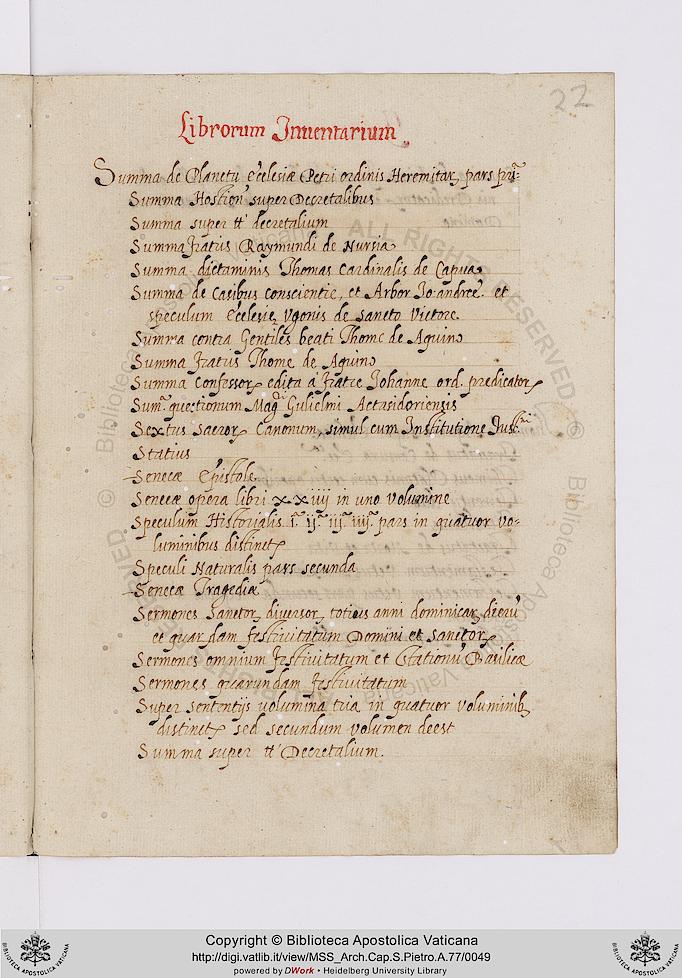 22
Librorum Inuentarium
Summa de Planetu ecclesiæ Petri ordinis Heremitar, pars pri.ª
Summa Hostien' super Decretalibus
Summa super tt' decretalium
Summa fratris Raymundi de Nursia
Summa dictaminis Thomas Cardinalis de Capua
Summa de Casibus conscientie, et Arbor Jo: andree. et
speculum Ecclesie Vgonis de sancto Victore.
Summa contra Gentiles beati Thome de Aquino
Summa fratris Thome de Aquino
Summa Confessor, edita a fratre Iohanne ord. predicator,
Sum.ª questionum Mag.ri Gulielmi Actasidoriensis
Sextus sacror, Canonum, simul cum Institutione Iust.ni
Statius
Senecæ Epistole
Senecæ opera libri xxiiij in uno volumine
Speculum Historialis i.ª ij.ª iij.ª iiij.ª pars in quatuor vo-
luminibus distinct,
Speculi Naturalis pars secunda
Senecæ Tragediæ
Sermones Sanctor, diuersor, totius anni dominicar, dierū
et quar,dam festiuitatum Domini et sanctor,
Sermones omnium festiuitatum et Stationū Basilicæ
Sermones quarundam festiuitatum
Super sententijs uolumina tria in quatuor voluminib,
distinct, sed secundum volumen deest
Summa super tt' Decretalium.
Copyright © Biblioteca Apostolica Vaticana
http://digi.vatlib.it/view/MSS_Arch.Cap.S.Pietro.A.77/0049
powered by DWork • Heidelberg University Library